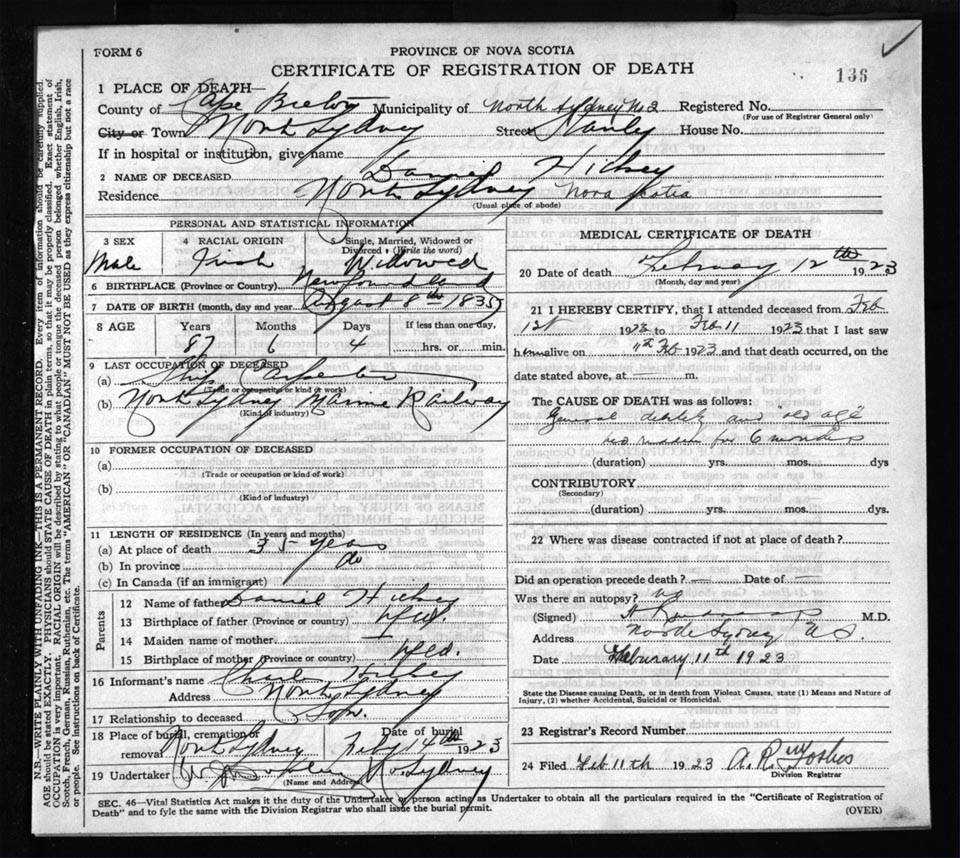 FORM 6
PROVINCE OF NOVA SCOTIA
CERTIFICATE OF REGISTRATION OF DEATH
136
1 PLACE OF DEATH—
County of Cape Breton Municipality of North Sydney No 2 Registered No.
(For use of Registrar General only)
City or Town North Sydney Street Stanley House No.
If in hospital or institution, give name
2 NAME OF DECEASED Daniel Hickey
Residence North Sydney Nova Scotia
(Usual place of abode)
PERSONAL AND STATISTICAL INFORMATION
3 SEX 4 RACIAL ORIGIN Single, Married, Widowed or Divorced. (Write the word)
Male Irish Widowed
6 BIRTHPLACE (Province or Country) Newfoundland
7 DATE OF BIRTH (month, day and year) August 8th 1835
8 AGE Years Months Days If less than one day,
87 6 4 hrs. or min.
9 LAST OCCUPATION OF DECEASED
(a) Ship Carpenter
(Trade or occupation or kind of work)
(b) North Sydney Marine Railway
(Kind of industry)
10 FORMER OCCUPATION OF DECEASED
(a)
(Trade or occupation or kind of work)
(b)
(Kind of industry)
11 LENGTH OF RESIDENCE (In years and months)
(a) At place of death 35 years
(b) In province do
(c) In Canada (if an immigrant)
Parents
12 Name of father Daniel Hickey
13 Birthplace of father (Province or country) Nfld.
14 Maiden name of mother
15 Birthplace of mother (Province or country) Nfld.
16 Informant's name Hickey
Address North Sydney
17 Relationship to deceased Son.
18 Place of burial, cremation or removal Date of burial
North Sydney Feby 14th 1923
19 Undertaker N. Sydney
(Name and Address)
MEDICAL CERTIFICATE OF DEATH
20 Date of death February 12th 1923
(Month, day and year)
21 I HEREBY CERTIFY, that I attended deceased from Feb
1923 to Feb 11 1923 that I last saw
him alive on 11th Feb 1923 and that death occurred, on the
date stated above, at m.
The CAUSE OF DEATH was as follows:
General debility and old age
for 6 months
(duration) yrs. mos. dys
CONTRIBUTORY
(Secondary)
(duration) yrs. mos. dys.
22 Where was disease contracted if not at place of death?
Did an operation precede death? — Date of —
Was there an autopsy? no
(Signed) M.D.
Address North Sydney N S.
Date Feburary 11th 1923
State the Disease causing Death, or in death from Violent Causes, state (1) Means and Nature of Injury, (2) whether Accidental, Suicidal or Homicidal.
23 Registrar's Record Number
24 Filed Feb 11th 1923 A. R.
Division Registrar
SEC. 46—Vital Statistics Act makes it the duty of the Undertaker or person acting as Undertaker to obtain all the particulars required in the "Certificate of Registration of
Death" and to fyle the same with the Division Registrar who shall issue the burial permit.
(OVER)
N.B.—WRITE PLAINLY WITH UNFADING INK—THIS IS A PERMANENT RECORD. Every item of information should be carefully supplied.
AGE should be stated EXACTLY. PHYSICIANS should STATE CAUSE OF DEATH in plain terms, so that it may be properly classified. Exact statement of
OCCUPATION is very important. RACIAL ORIGIN will be described by stating to what people or tongue the deceased person belonged whether English, Irish,
Scotch, French, German, Russian, Ruthenian, etc. The terms "AMERICAN" OR "CANADIAN" MUST NOT BE USED as they express citizenship but not a race
or people. See instructions on back of Certificate.